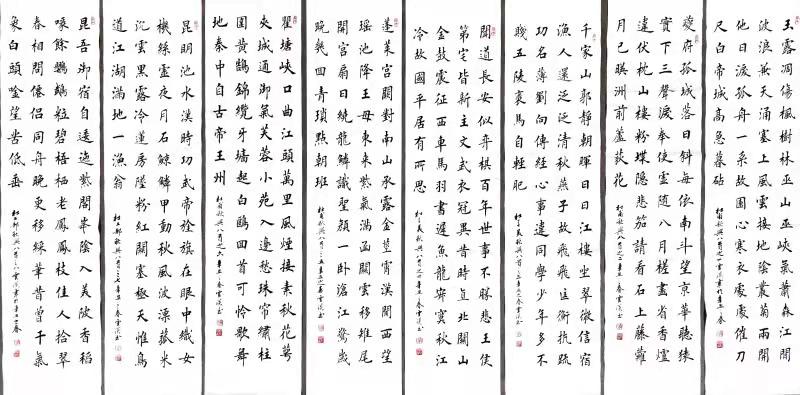 玉露凋傷楓樹林巫山巫峽氣蕭森江間
波浪兼天涌塞上風雲接地陰叢菊兩開
他日淚孤舟一系故園心寒衣處處催刀
尺白帝城高急暮砧
夔府孤城落日斜每依南斗望京華聽猿
實下三聲淚奉使虛隨八月槎畫省香爐
違伏枕山樓粉堞隱悲笳請看石上藤蘿
月已映洲前蘆荻花
千家山郭靜朝暉日日江樓坐翠微信宿
漁人還泛泛清秋燕子故飛飛匡衡抗疏
功名薄劉向傳經心事違同學少年多不
賤五陵裘馬自輕肥
聞道長安似弈棋百年世事不勝悲王侯
第宅皆新主文武衣冠異昔時直北關山
金鼓震征西車馬羽書遲魚龍寂寞秋江
冷故國平居有所思
蓬萊宮闕對南山承露金莖霄漢間西望
瑤池降王母東來紫氣滿函關雲移雉尾
開宮扇日繞龍鱗識聖顏一臥滄江驚歲
晚幾回青瑣點朝班
瞿塘峽口曲江頭萬里風煙接素秋花萼
夾城通御氣芙蓉小苑入邊愁珠帘繡柱
圍黃鵠錦纜牙墻起白鷗回首可憐歌舞
地秦中自古帝王州
昆明池水漢時功武帝旌旗在眼中織女
機絲虛夜月石鯨鱗甲動秋風波漂菰米
沉雲黑露冷蓮房墜粉紅關塞極天惟鳥
道江湖滿地一漁翁
昆吾御宿自逶迤紫閣峰陰入渼陂香稻
啄餘鸚鵡粒碧梧栖老鳳凰枝佳人拾翠
春相問僊侶同舟晚更移綵筆昔曾干氣
象白頭吟望苦低垂